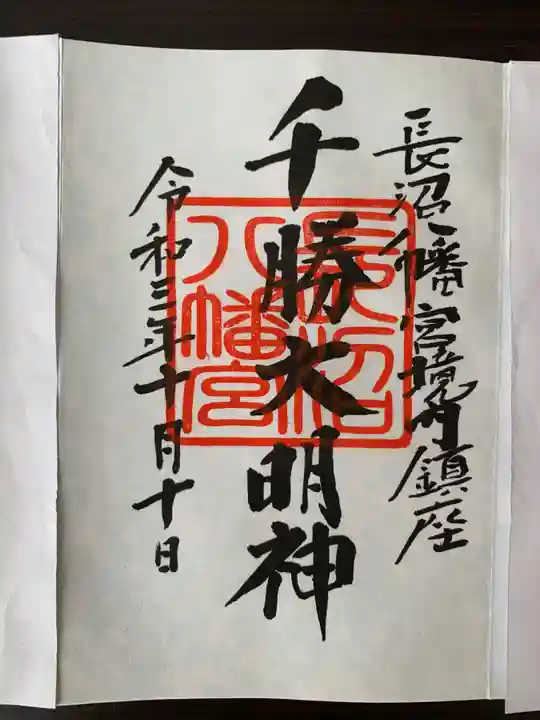 長沼八幡宮境内鎮座
千勝大明神
令和三年十月十日
長沼
八幡宮